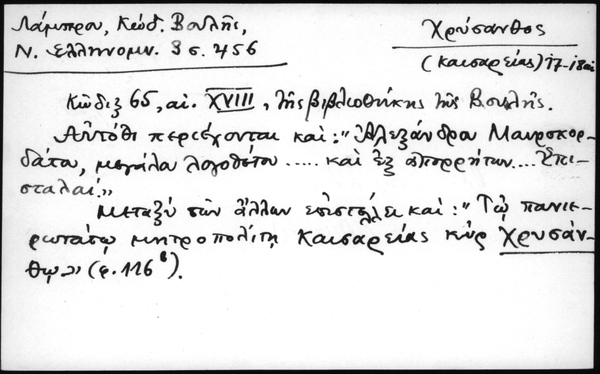 Λάμπρου, Κώδ. Βουλῆς,
Ν. Ἑλληνομν. 3 σ. 456
Χρύσανθος
(Καισαρείας) 17-18 αἰ
Κῶδιξ 65, αἰ. XVIII, τῆς βιβλιοθήκης τῆς Βουλῆς.
Αὐτόθι περιέχονται καὶ: "Ἀλεξάνδρου Μαυροκορ-
δάτου, μεγάλου λογοθέτου ..... καὶ ἐξ ἀπορρήτων.... Ἐπι-
στολαί."
Μεταξὺ τῶν ἄλλων ἐπιστέλλει καὶ: "Τῷ πανιε-
ρωτάτῳ μητροπολίτῃ Καισαρείας κὺρ Χρυσάν-
θῳ" (φ. 116β).